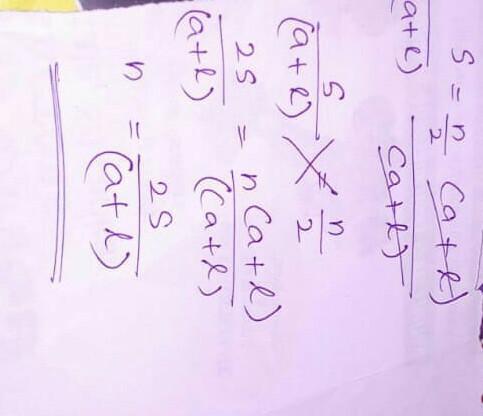 S/(a+l) = n/2 (a+l)/(a+l)
S/(a+l) = n/2
2S/(a+l) = n(a+l)/((a+l)
n = 2S/(a+l)